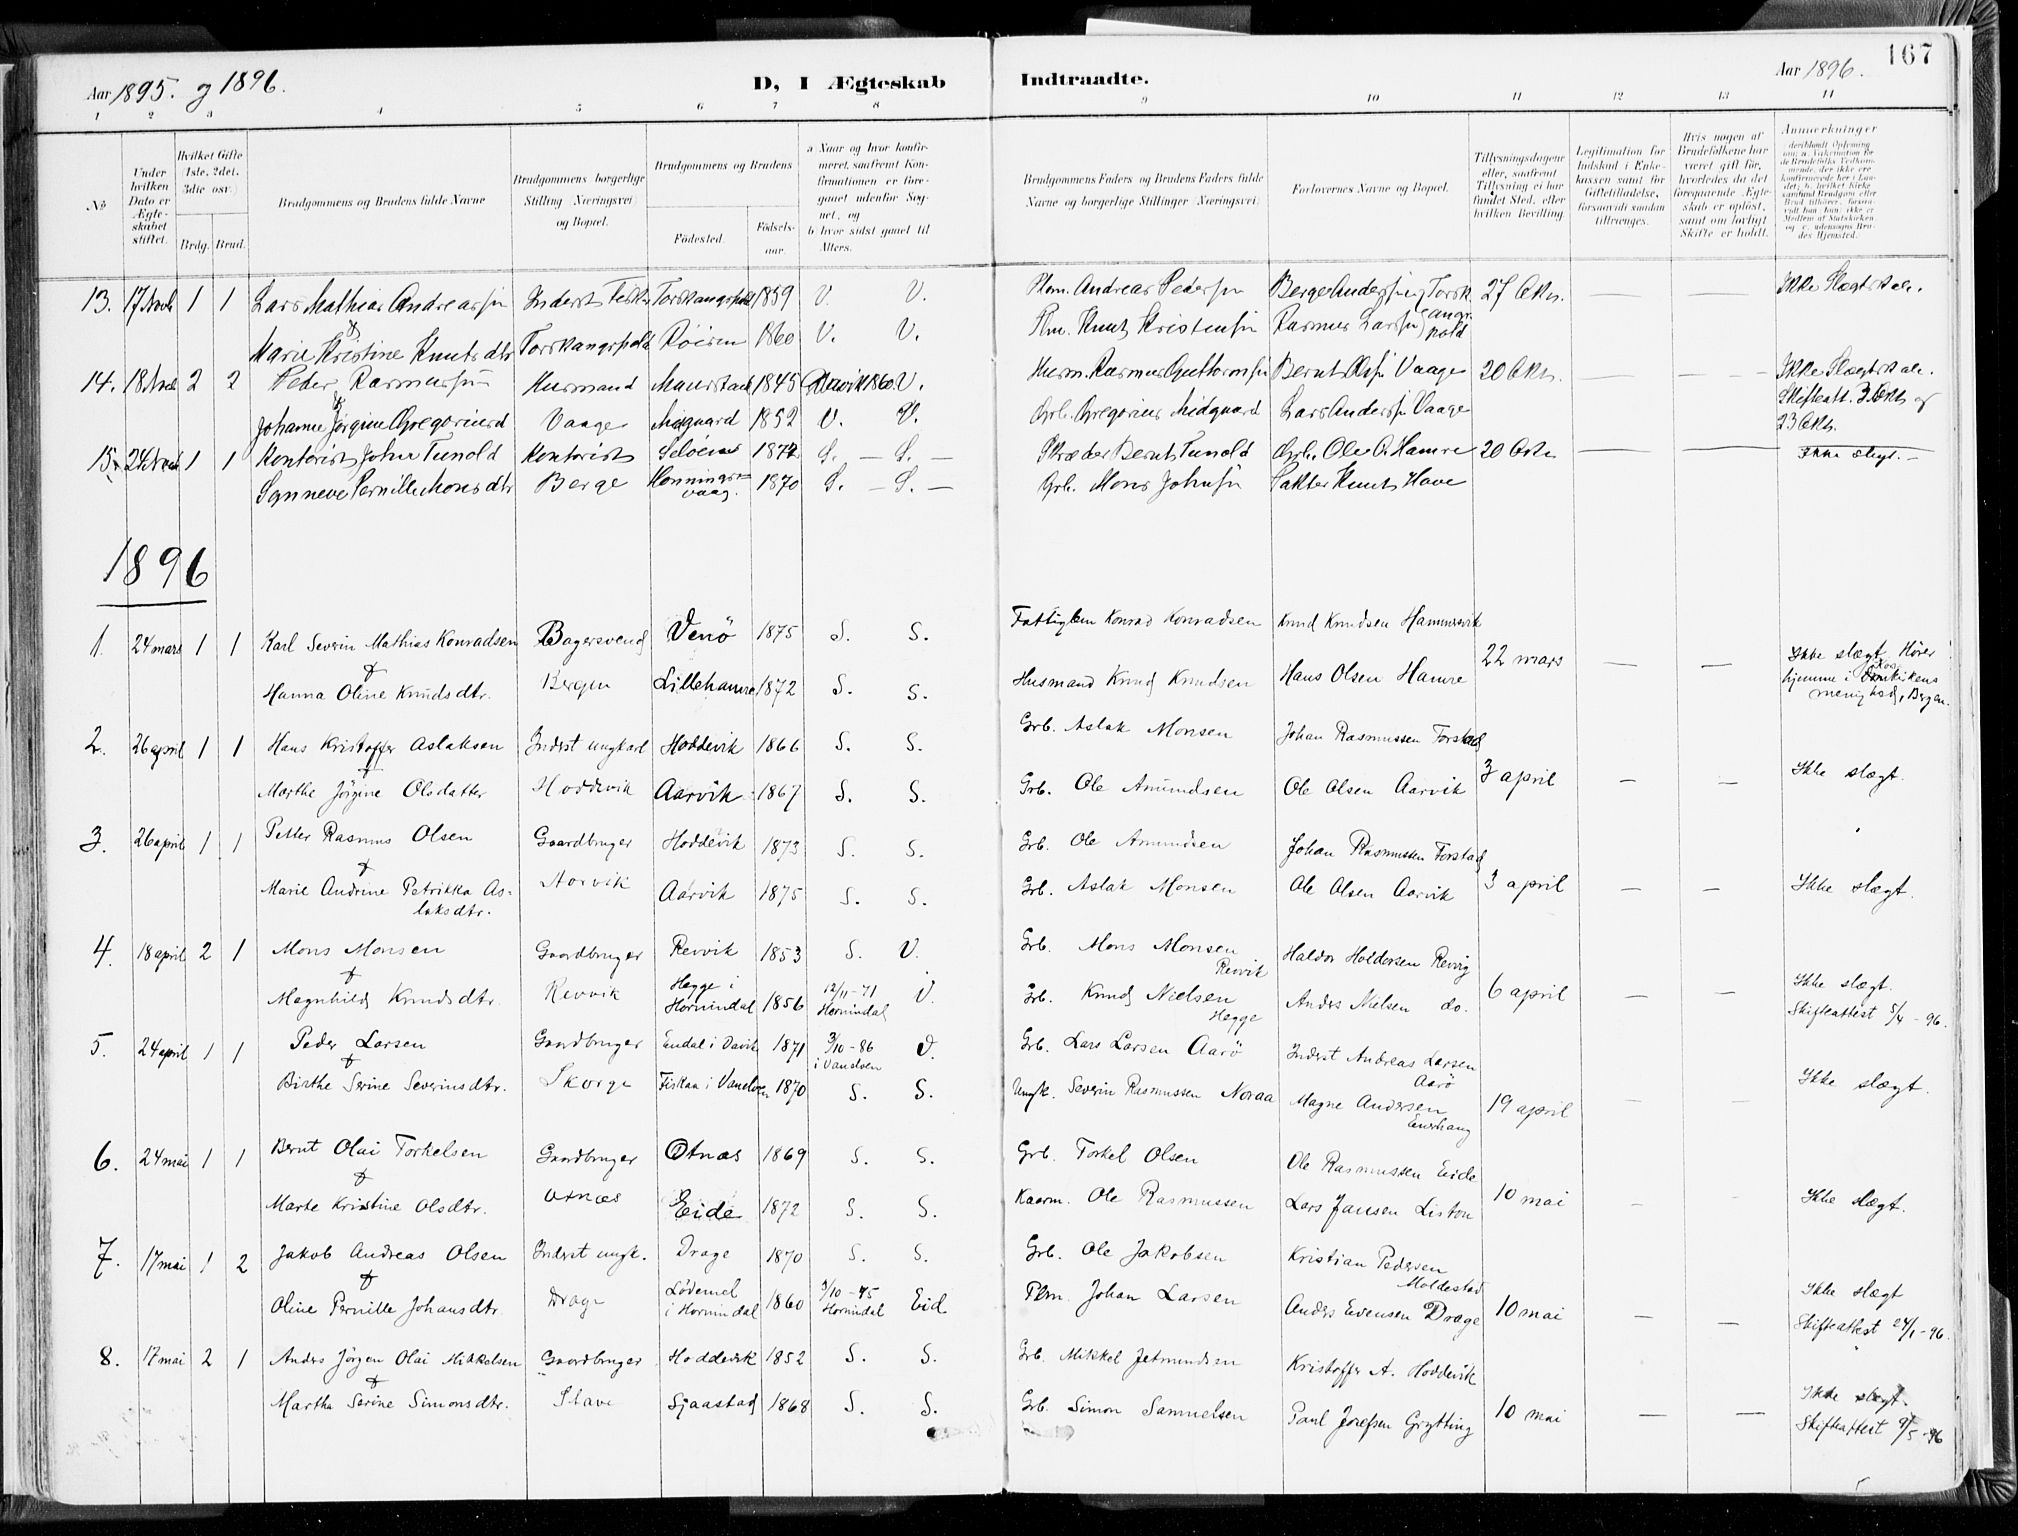 167
Aar 1895. og 1896. D, I Ægteskab Indtraadte. Aar 1896.
1 2 3 4 5 6 7 8 9 10 11 12 13 14
No
Under hvilken Dato er Ægteskabet stiftet.
Hvilket Gifte 1ste, 2det, 3die osv.
Brdg. Brud.
Brudgommens og Brudens fulde Navne
Brudgommens borgerlige Stilling Næringsvei og Bopæl.
Brudgommens og Brudens
Födested. Födselsaar.
a Naar og hvor konfirmeret, saafremt Konfirmationen er foregaaet udenfor Sognet, og
b hvor sidst gaaet til Alters.
Brudgommens Faders og Brudens Faders fulde Navne og borgerlige Stillinger Næringsvei.
Forlovernes Navne og Bopæl.
Tillysningsdagene eller, saafremt Tillysning ei har fundet Sted, efter hvilken Bevilling.
Legitimation for Indskud i Enkekassen samt for Giftetilladelse, forsaavidt saadan tiltrænges.
Hvis nogen af Brudefolkene har været gift för, hvorledes da det foregaaende Ægteskab er oplöst, samt om lovligt Skifte er holdt.
Anmerkninger
13. 17 1 1 Lars Mathias Andreassen Inderst Fisker 1859 V. V. Andreas Pedersen Berge Andersen Torsk 27 Oktr. — — Ikke Slægtskab.
&
Marie Kristine Knutsdtr Röisen 1860 V. V. Knut Kristensen Rasmus Larsen
14. 18 2 2 Peder Rasmussen Husmand Maurstad 1845 1860. V. Husm. Rasmus Guttormsen Bernt Vaage 20 Oktr. — — Ikke Slægtskab.
&
Johanne Jörgine Gregoriusd Vaage Midgaard 1852 V. V. Grb. Gregorius Midgaard Lars Andersen Vaage 23 Oktr.
15. 24 1 1 Kontorist John Tunold Kontorist 1872 S. — S. — Skræder Bernt Tunold Grb. Ole O. Hamre 20 Oktr. — — Ikke slegt. —
Synneve Pernille Monsdtr Berge Honningsvaag. 1870 S. — S. — Grb. Mons Johnsen Knut Hove
1896
1. 24 mars 1 1 Karl Severin Mathias Konradsen Bagersvend Venö 1875 S. S. Fattiglem Konrad Konradsen Knud Knudsen Hammersvik 22 mars — — Ikke slægt. Hører
&
Hanna Oline Knudsdtr. Bergen Lillehamre 1872 S. S. Husmand Knud Knudsen Hans Olsen Hamre hjemme i
menighed, Bergen.
2. 26 april 1 1 Hans Kristoffer Aslaksen Inderst ungkarl Hoddevik 1866 S. S. Grb. Aslak Monsen Johan Rasmussen Forstad
&
Marthe Jörgine Olsdatter Hoddevik Aarvik 1867 S. S. Grb. Ole Amundsen Ole Olsen Aarvik 3 april — — Ikke slegt.
3. 26 april 1 1 Petter Rasmus Olsen Gaardbruger Hoddevik 1873 S. S. Grb. Ole Amundsen Johan Rasmussen Forstad
&
Marie Andrine Petrikka Aslaksdtr. Aarvik Aarvik 1875 S. S. Grb. Aslak Monsen Ole Olsen Aarvik 3 april — — Ikke slegt.
4. 18 april 2 1 Mons Monsen Gaardbruger Revvik 1853 S. V. Grb. Mons Monsen Revvik Haldor Holdersen Revvig
&
Magnhild Knudsdtr. Revvik Hegge i Hornindal 1856 12/11-71 Hornindal V. Grb. Knud Nielsen Hegge Anders Nielsen do. 6 april — — Ikke slegt.
Skifteattest 5/4 - 96.
5. 24 april 1 1 Peder Larsen Gaardbruger Endal i Davik 1871 3/10-86 i Vanelven V. Grb. Lars Larsen Aarö Inderst Andreas Larsen Aarö
&
Birthe Serine Severinsdtr. Skorge Fiskaa i Vanelven 1870 S. S. Ungk. Severin Rasmussen Noraa Magne Andersen 19 april — — Ikke slegt.
6. 24 mai 1 1 Bernt Olai Torkelsen Gaardbruger Otnæs 1869 S. S. Grb. Torkel Olsen Ole Rasmussen Eide
&
Marte Kristine Olsdtr. Otnæs Eide 1872 S. S. Kaarm. Ole Rasmussen Lars Jansen Liston 10 mai — - Ikke slægt.
7. 17 mai 1 2 Jakob Andreas Olsen Inderst ungk. Drage 1870 S. S. Grb. Ole Jakobsen Kristian Pedersen Moldestad
&
Oline Pernille Johansdtr. Drage Lödemel i Hornindal 1860 3/10-75 Hornindal Eid Plm. Johan Larsen Anders Evensen Drage 10 mai — — Ikke slegt
Skifteattest 24/1-96.
8. 17 mai 2 1 Anders Jörgen Olai Mikkelsen Gaardbruger Hoddevik 1852 S. S. Grb. Mikkel Jetmundsen Kristoffer A. Hoddevik
&
Martha Serine Simonsdtr. Stave Sjaastad 1868 S. S. Grb. Simon Samuelsen Paul Josefsen Grytting 10 mai — — Ikke slegt.
Skifteattest 9/5-96